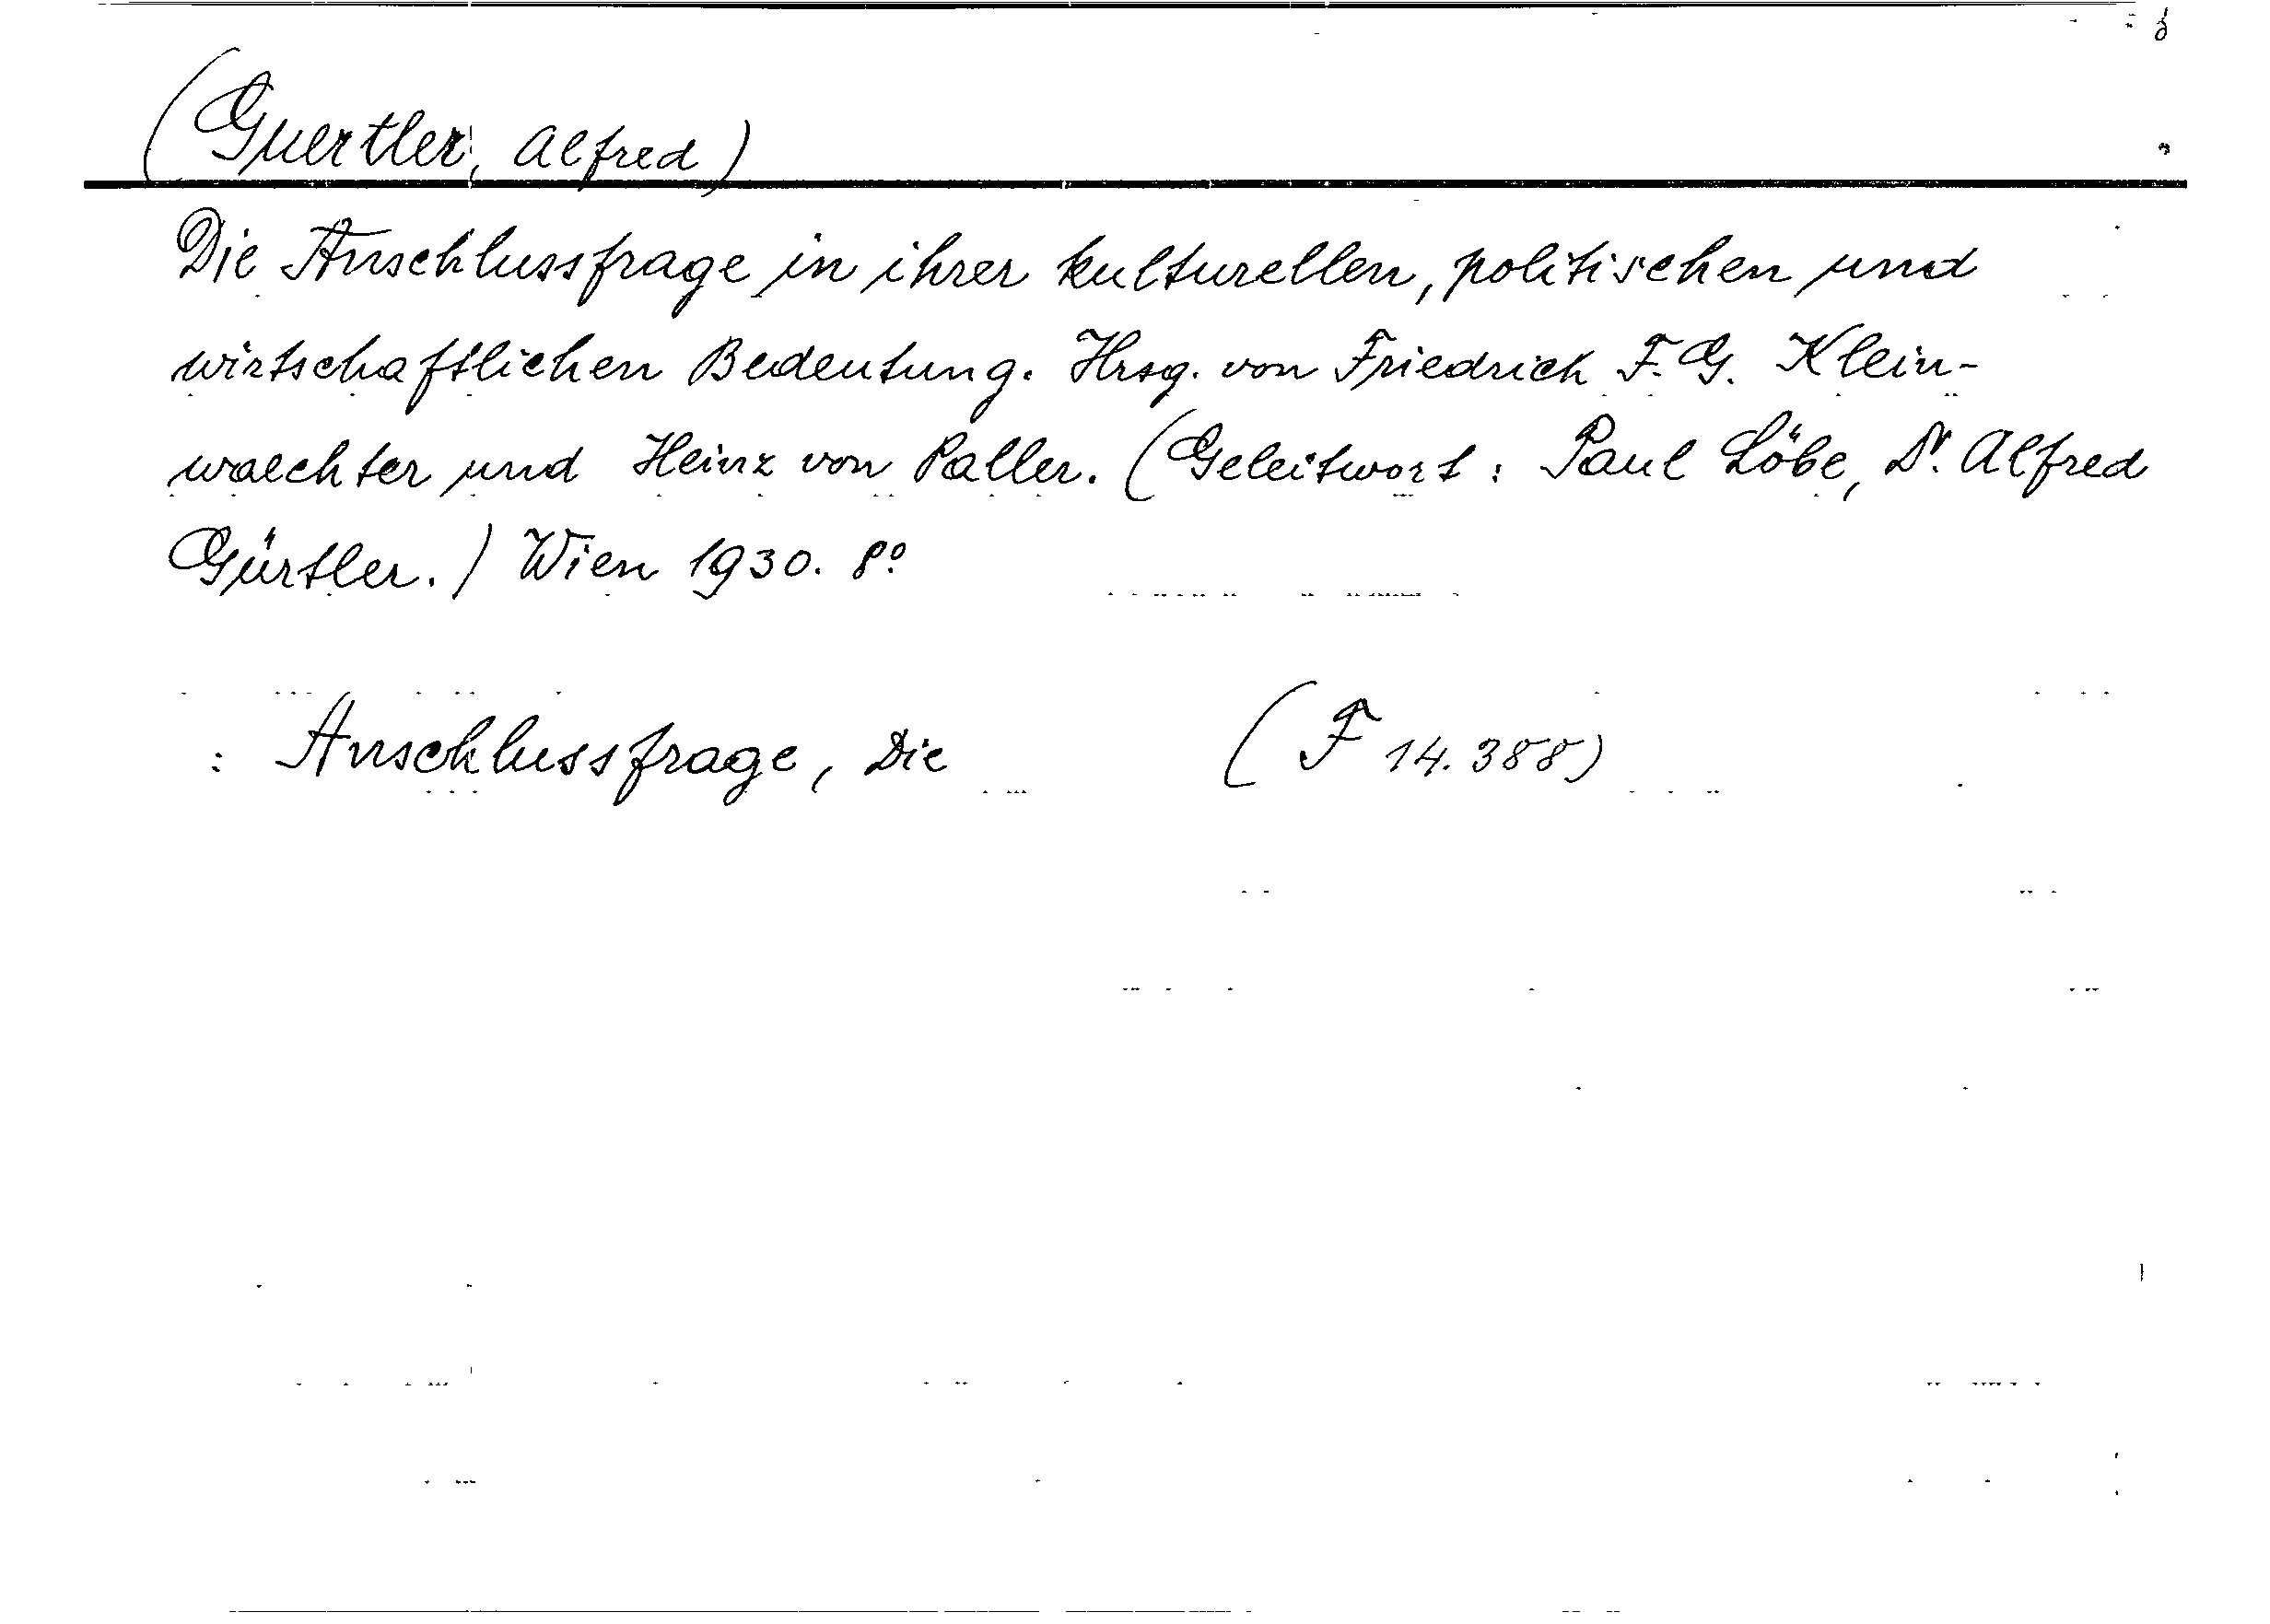 (Guertler, Alfred)
Die Anschlussfrage in ihrer kulturellen, politischen und
wirtschaftlichen Bedeutung. Hrsg. von Friedrich F. G. Klein-
waechter und Heinz von Paller. (Geleitwort: Paul Löbe, Dr. Alfred
Gürtler.) Wien 1930. 8º
: Anschlussfrage, Die (F 14.388)